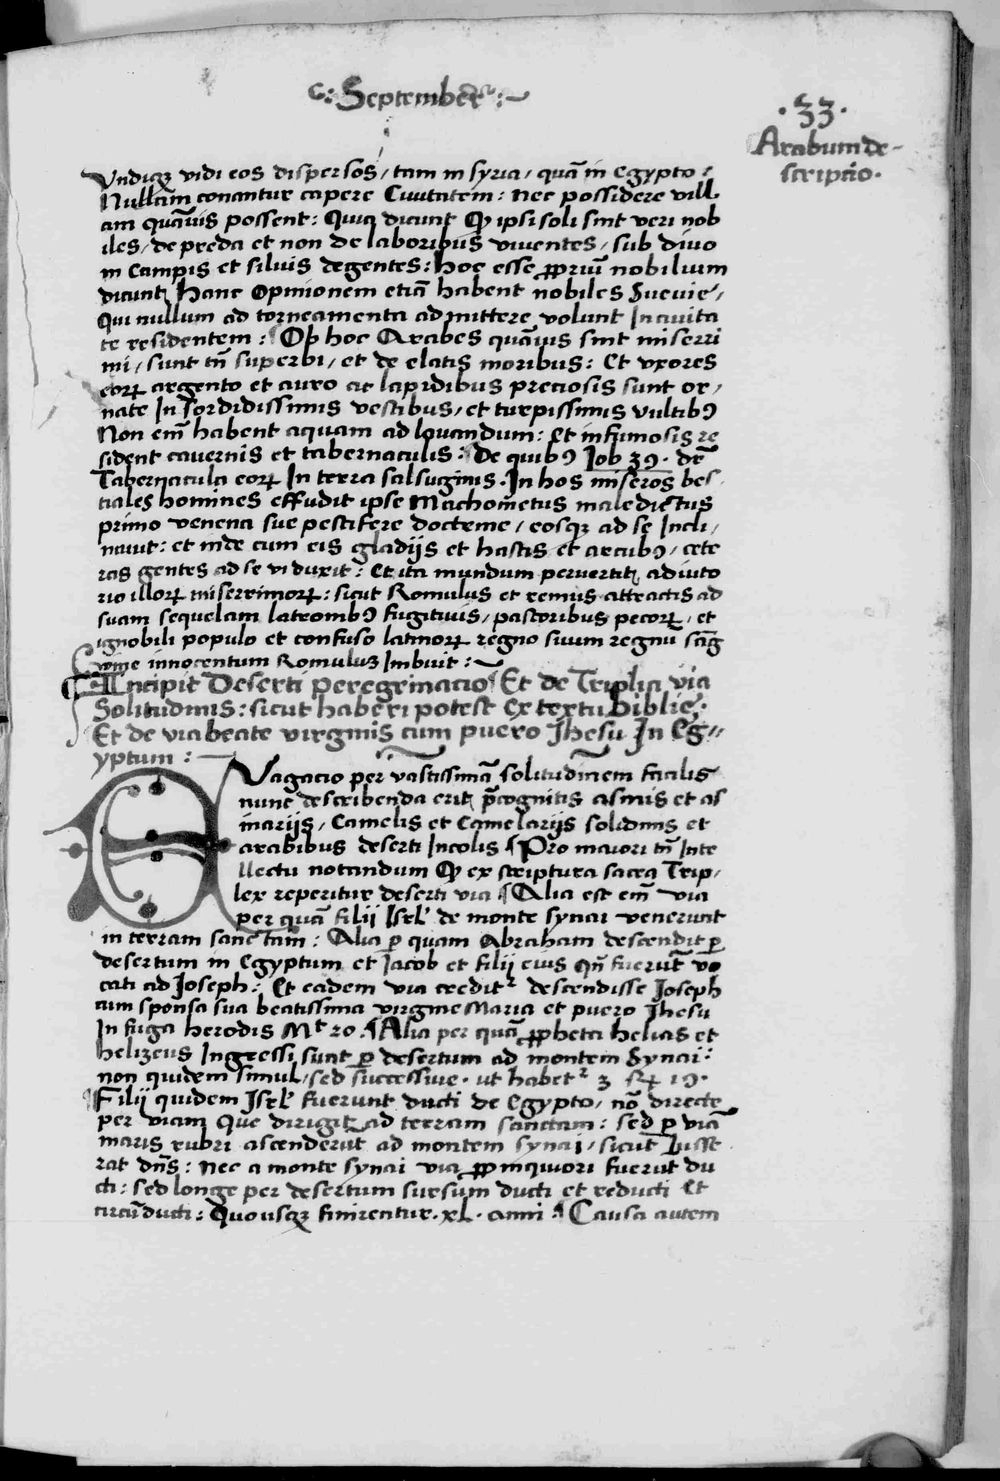 C: September: ~
.33.
Arabum de-
scriptio.
Vndiqꝫ vidi eos dispersos / tam in syria / quā in Egypto:
Nullam conantur capere Ciuitatem: nec possidere vill
am quāuis possent: Quia dicunt ꝙ ipsi soli sint veri nob
iles / de preda et non de laboribus viuentes / sub diuo
in Campis et siluis degentes: hoc esse ꝓpriū nobilium
dicunt hanc opinionem etiā habent nobiles Sueuie /
Qui nullum ad torneamenta admittere volunt In ciuita
te residentem: Ob hoc Arabes quāuis sint miserri
mi / sunt tn̄ superbi / et de elatis moribus: Et vxores
eorꝝ argento et auro ac lapidibus preciosis sunt or /
nate In sordidissimis vestibus / et turpissimis vultibꝰ
Non em̄ habent aquam ad lauandum: Et in fumosis re
sident cauernis et tabernaculis: De quibꝰ Job 39. dr̄
Tabernacula eorꝝ In terra salsuginis. In hos miseros bes
tiales homines effudit ipse Machometus maledictus
primo venena sue pestifere doctrine / eosqꝫ ad se Incli /
nauit: et inde cum eis gladijs et hastis et arcubꝰ / cete
ras gentes ad se vi duxit: Et ita mundum peruertit adiuto
rio illorꝝ miserrimorꝝ: sicut Romulus et remus attractis ad
suam sequelam latronibꝰ fugitiuis / pastoribus pecorꝝ / et
ignobili populo et confuso latinorꝝ regno suum regnū sāg
wine innocentum Romulus Imbuit: ~
¶ Incipit Deserti peregrinacio Et de Triplici via
Solitudinis: sicut haberi potest ex textu Biblie.
Et de via beate virginis cum puero Jhesu In Eg
yptum: ~
Evagacio per vastissimā solitudinem facilis
nunc describenda erit p̄cognitis asinis et as
inarijs / Camelis et Camelarijs solidinis et
arabibus deserti Incolis ¶ Pro maiori tn̄ Inte
llectu notandum ꝙ ex scriptura sacra Trip /
lex reperitur deserti via ¶ Alia est em̄ via
per quā filij Isrl' de monte synai venerunt
in terram sanctam: Alia ꝑ quam Abraham descendit ꝑ
desertum in Egyptum et Jacob et filij eius qn̄ fuerūt vo
cati ad Joseph: Et eadem via creditr descendisse Joseph
cum sponsa sua beatissima virgine Maria et puero Jhesu
In fuga herodis Mt 20. ¶ Alia per quā ꝓpheta helias et
helizeus Ingressi sunt ꝑ desertum ad montem Synai:
non quidem simul / sed successiue. ut habetr 3 19.
¶ Filij quidem Isrl' fuerunt ducti de Egypto / nō directe
per viam que dirigit ad terram sanctam: sed ꝑ viā
maris rubri ascenderūt ad montem synai / sicut Iusse
rat dn̄s: nec a monte synai via ꝓpinquiori fuerūt du
cti: sed longe per desertum sursum ducti et reducti et
circūducti: Quousqꝫ finirentur. xl. anni: ¶ Causa autem